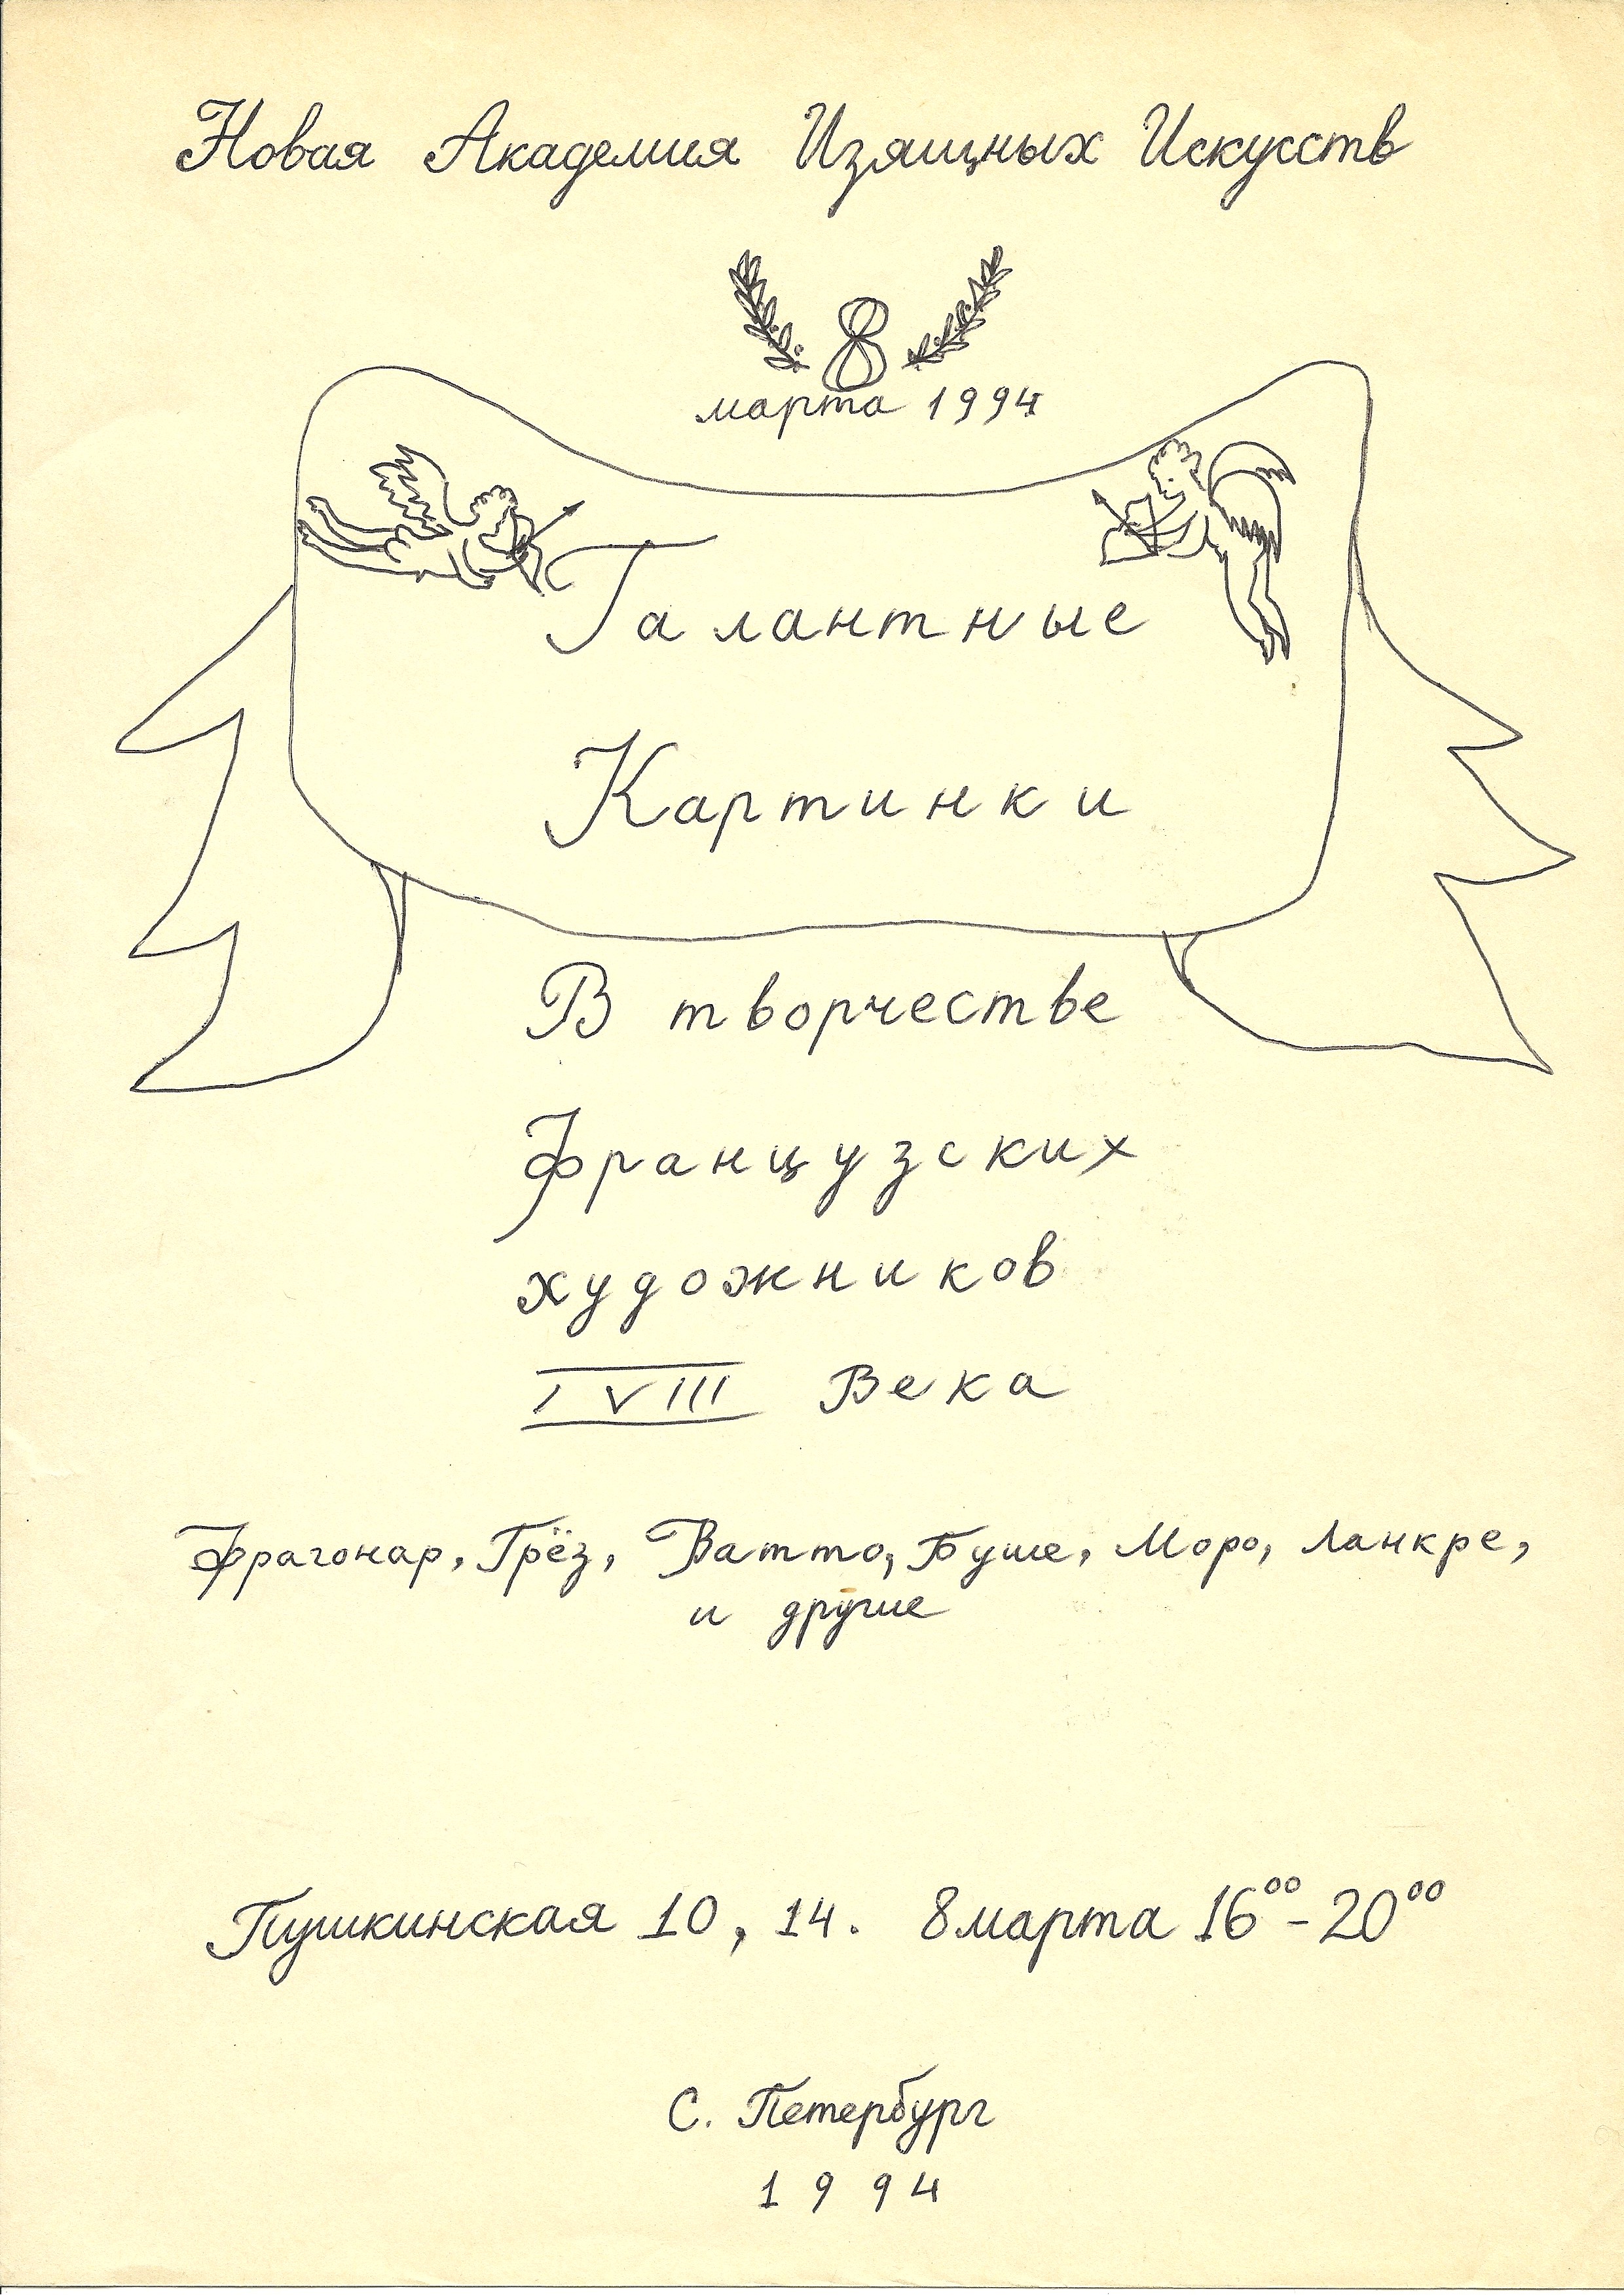 Новая Академия Изящных Искусств
8
марта 1994
Галантные
Картинки
В творчестве
французских
художников
IVIII Века
Фрагонар, Грёз, Ватто, Буше, Моро, Ланкре,
и другие
Пушкинская 10, 14. 8 марта 16⁰⁰ - 20⁰⁰
С. Петербург
1994